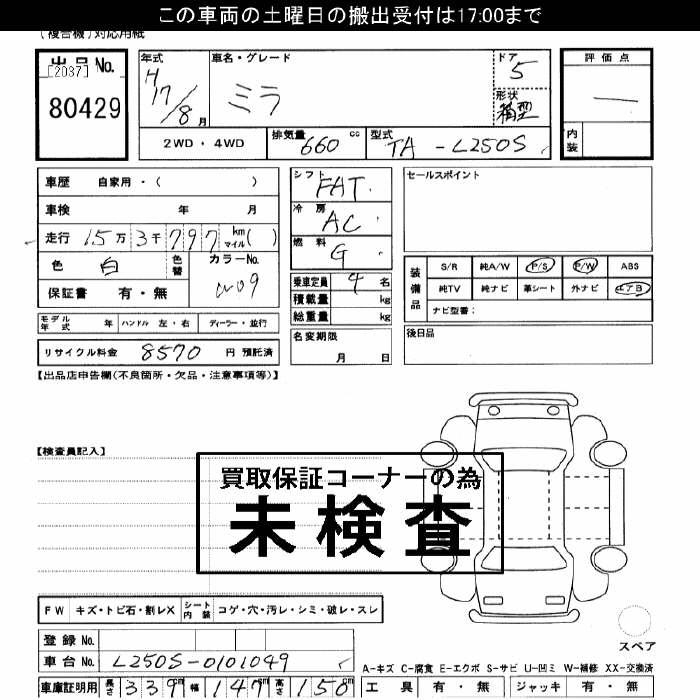 この車両の土曜日の搬出受付は17:00まで
(複合機)対応用紙
出品No.
[2037]
80429
年式
H17/8月
車名・グレード
ミラ
ドア
5
形状
箱型
評価点
―
内装
2WD・4WD
排気量 660 cc
型式 TA-L250S
車歴 自家用・( )
車検 年 月
走行 15万3千797 km マイル( )
色 白
色替
カラーNo.
W09
保証書 有・無
シフト FAT
冷房 AC
燃料 G
乗車定員 4名
積載量 kg
総重量 kg
名変期限
月 日
セールスポイント
装備品
S/R 純A/W P/S P/W ABS
純TV 純ナビ 革シート 外ナビ エアB
ナビ型番:
後日品
モデル年式 年 ハンドル 左・右 ディーラー・並行
リサイクル料金 8570 円 預託済
【出品店申告欄(不良箇所・欠品・注意事項等)】
【検査員記入】
買取保証コーナーの為
未検査
FW キズ・トビ石・割レX シート内装 コゲ・穴・汚レ・シミ・破レ・スレ
登録No.
車台No. L250S-0101049
スペア
A-キズ C-腐食 E-エクボ S-サビ U-凹ミ W-補修 XX-交換済
車庫証明用 長さ 339cm 幅 147cm 高さ 150cm
工具 有・無 ジャッキ 有・無